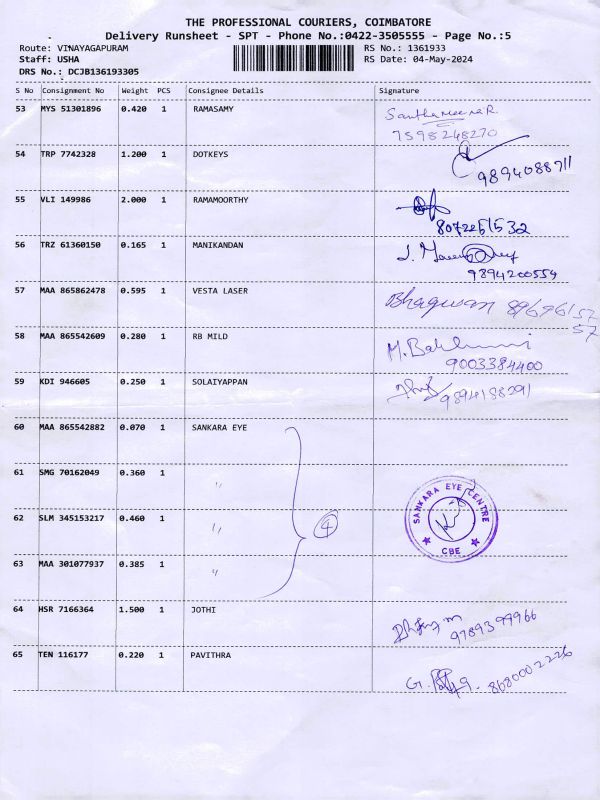 THE PROFESSIONAL COURIERS, COIMBATORE
Delivery Runsheet - SPT - Phone No.:0422-3505555 - Page No.:5
Route: VINAYAGAPURAM RS No.: 1361933
Staff: USHA RS Date: 04-May-2024
DRS No.: DCJB136193305
S No Consignment No Weight PCS Consignee Details Signature
53 MYS 51301896 0.420 1 RAMASAMY
7598248270
54 TRP 7742328 1.200 1 DOTKEYS
9894088711
55 VLI 149986 2.000 1 RAMAMOORTHY
56 TRZ 61360150 0.165 1 MANIKANDAN
9894200554
57 MAA 865862478 0.595 1 VESTA LASER Bhagwan
57
58 MAA 865542609 0.280 1 RB MILD
9003384400
59 KDI 946605 0.250 1 SOLAIYAPPAN
60 MAA 865542882 0.070 1 SANKARA EYE
61 SMG 70162049 0.360 1 "
62 SLM 345153217 0.460 1 " 4
63 MAA 301077937 0.385 1 "
SANKARA EYE CENTRE
CBE
64 HSR 7166364 1.500 1 JOTHI
9789399966
65 TEN 116177 0.220 1 PAVITHRA
8680002226